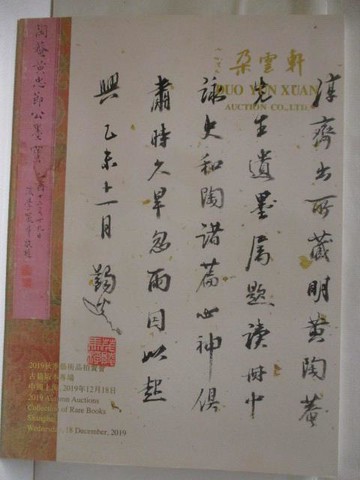 朵雲軒
DUO YUN XUAN
AUCTION CO.,LTD.
淳齋出所藏明黃陶菴
先生遺墨属題讀冊中
詠史和陶諸篇心神俱
肅時久旱忽雨因以起
興乙未十一月
陶菴黃忠節公墨
2019秋季藝術品拍賣會
古籍版本專場
中國上海 2019年12月18日
2019 Autumn Auctions
Collection of Rare Books
Shanghai
Wednesday, 18 December, 2019